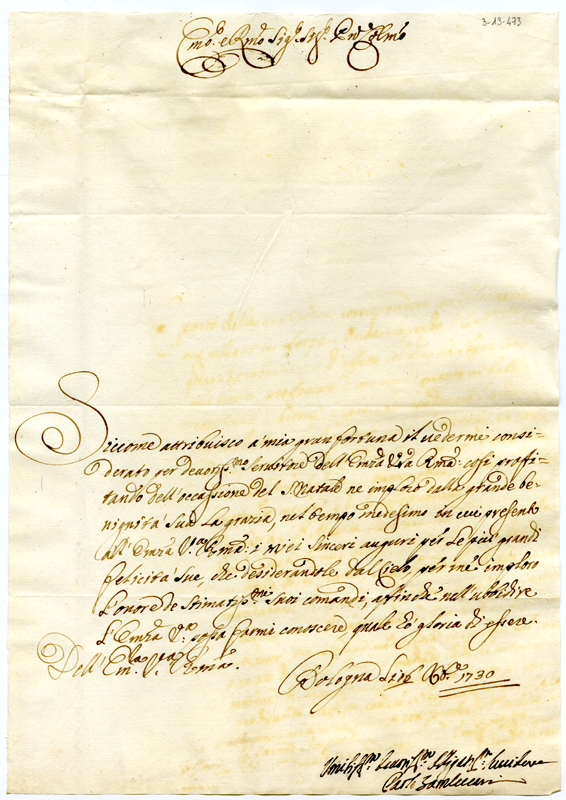 3-13-473
Emo. e Rmo. Sig. Sig. Pne. Colmo
Siccome attribuisco à mia gran fortuna il uedermi consi=
derato per deuotiss.mo seruitore dell'Emza V.ra Rma: così proffi=
tando dell'occassione del S. Natale ne imploro dalla grande be=
nignità sua la grazia, nel tempo medesimo in cui presento
all'Emza V.ra Rma: i miei sinceri auguri per le più grandi
felicità sue, che desiderandole dal Cielo per me imploro
l'onore de stimatiss.mi suoi comandi, affinche nell'ubbidire
l'Emza V.ra possa farmi conoscere, quale hò gloria di essere.
Dell'Em.za V.ra Rema.
Bologna li Xbre. 1730
Umiliss.mo Deuotiss.mo Obligatiss.mo Seruitore
Carlo